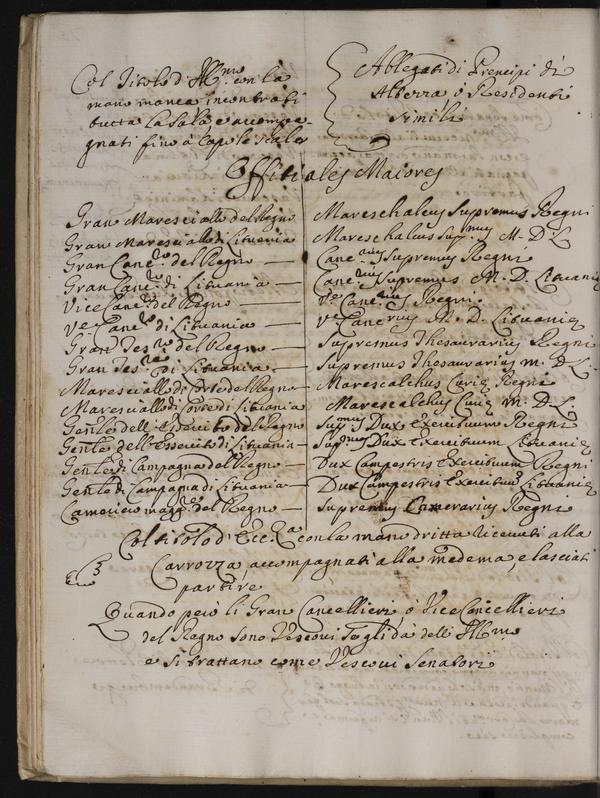 Col Titolo d'Ill.mo con la
mano manca incontrati
tutta la Sala e accompa-
gnati fino à Capo le scale
Ablegati di Prencipi di
Alterza ò Residenti
simili
Offitiales Maiores
Gran Maresciallo del Regno Mareschalcus Supremus Regni
Gran Maresciallo di Lituania Mareschalcus Sup.mus M. D. L.
Gran Canc.ro del Regno — Canc.ius Supremus Regni
Gran Canc.ro di Lituania — Canc.ius Supremus M. D. Lituaniæ
Vice Canc.ro del Regno — V.e Canc.ius Regni
V.e Canc.ro di Lituania — V.e Canc.rius M. D. Lituaniæ
Gran Tes.ro del Regno — Supremus Thesaurarius Regni
Gran Tes.ro di Lituania — Supremus Thesaurarius M. D. L.
Maresciallo di Corte del Regno — Marescalchus Curiæ Regni
Maresciallo di Corte di Lituania Marescalchus Curiæ M. D. L.
Gen.le dell'Essercito del Regno Sup.mus Dux Exercituum Regni
Gen.le dell'Essercito di Lituania — Sup.mus Dux Exercituum Lituaniæ
Gen.le di Campagna del Regno — Dux Campestris Exercituum Regni
Gen.le di Campagna di Lituania — Dux Campestris Exercituum Lituaniæ
Camoriero magg.re del Regno — Supremus Camerarius Regni
Col titolo d'Ecc.za con la mano dritta riceuuti alla
Carrozza, accompagnati alla medema, e lasciati
partire
Quando però li Gran Cancellieri ò Vice Cancellieri
del Regno sono Vescoui se gli dà dell'Ill.mo
e si trattano come Vescoui Senatori